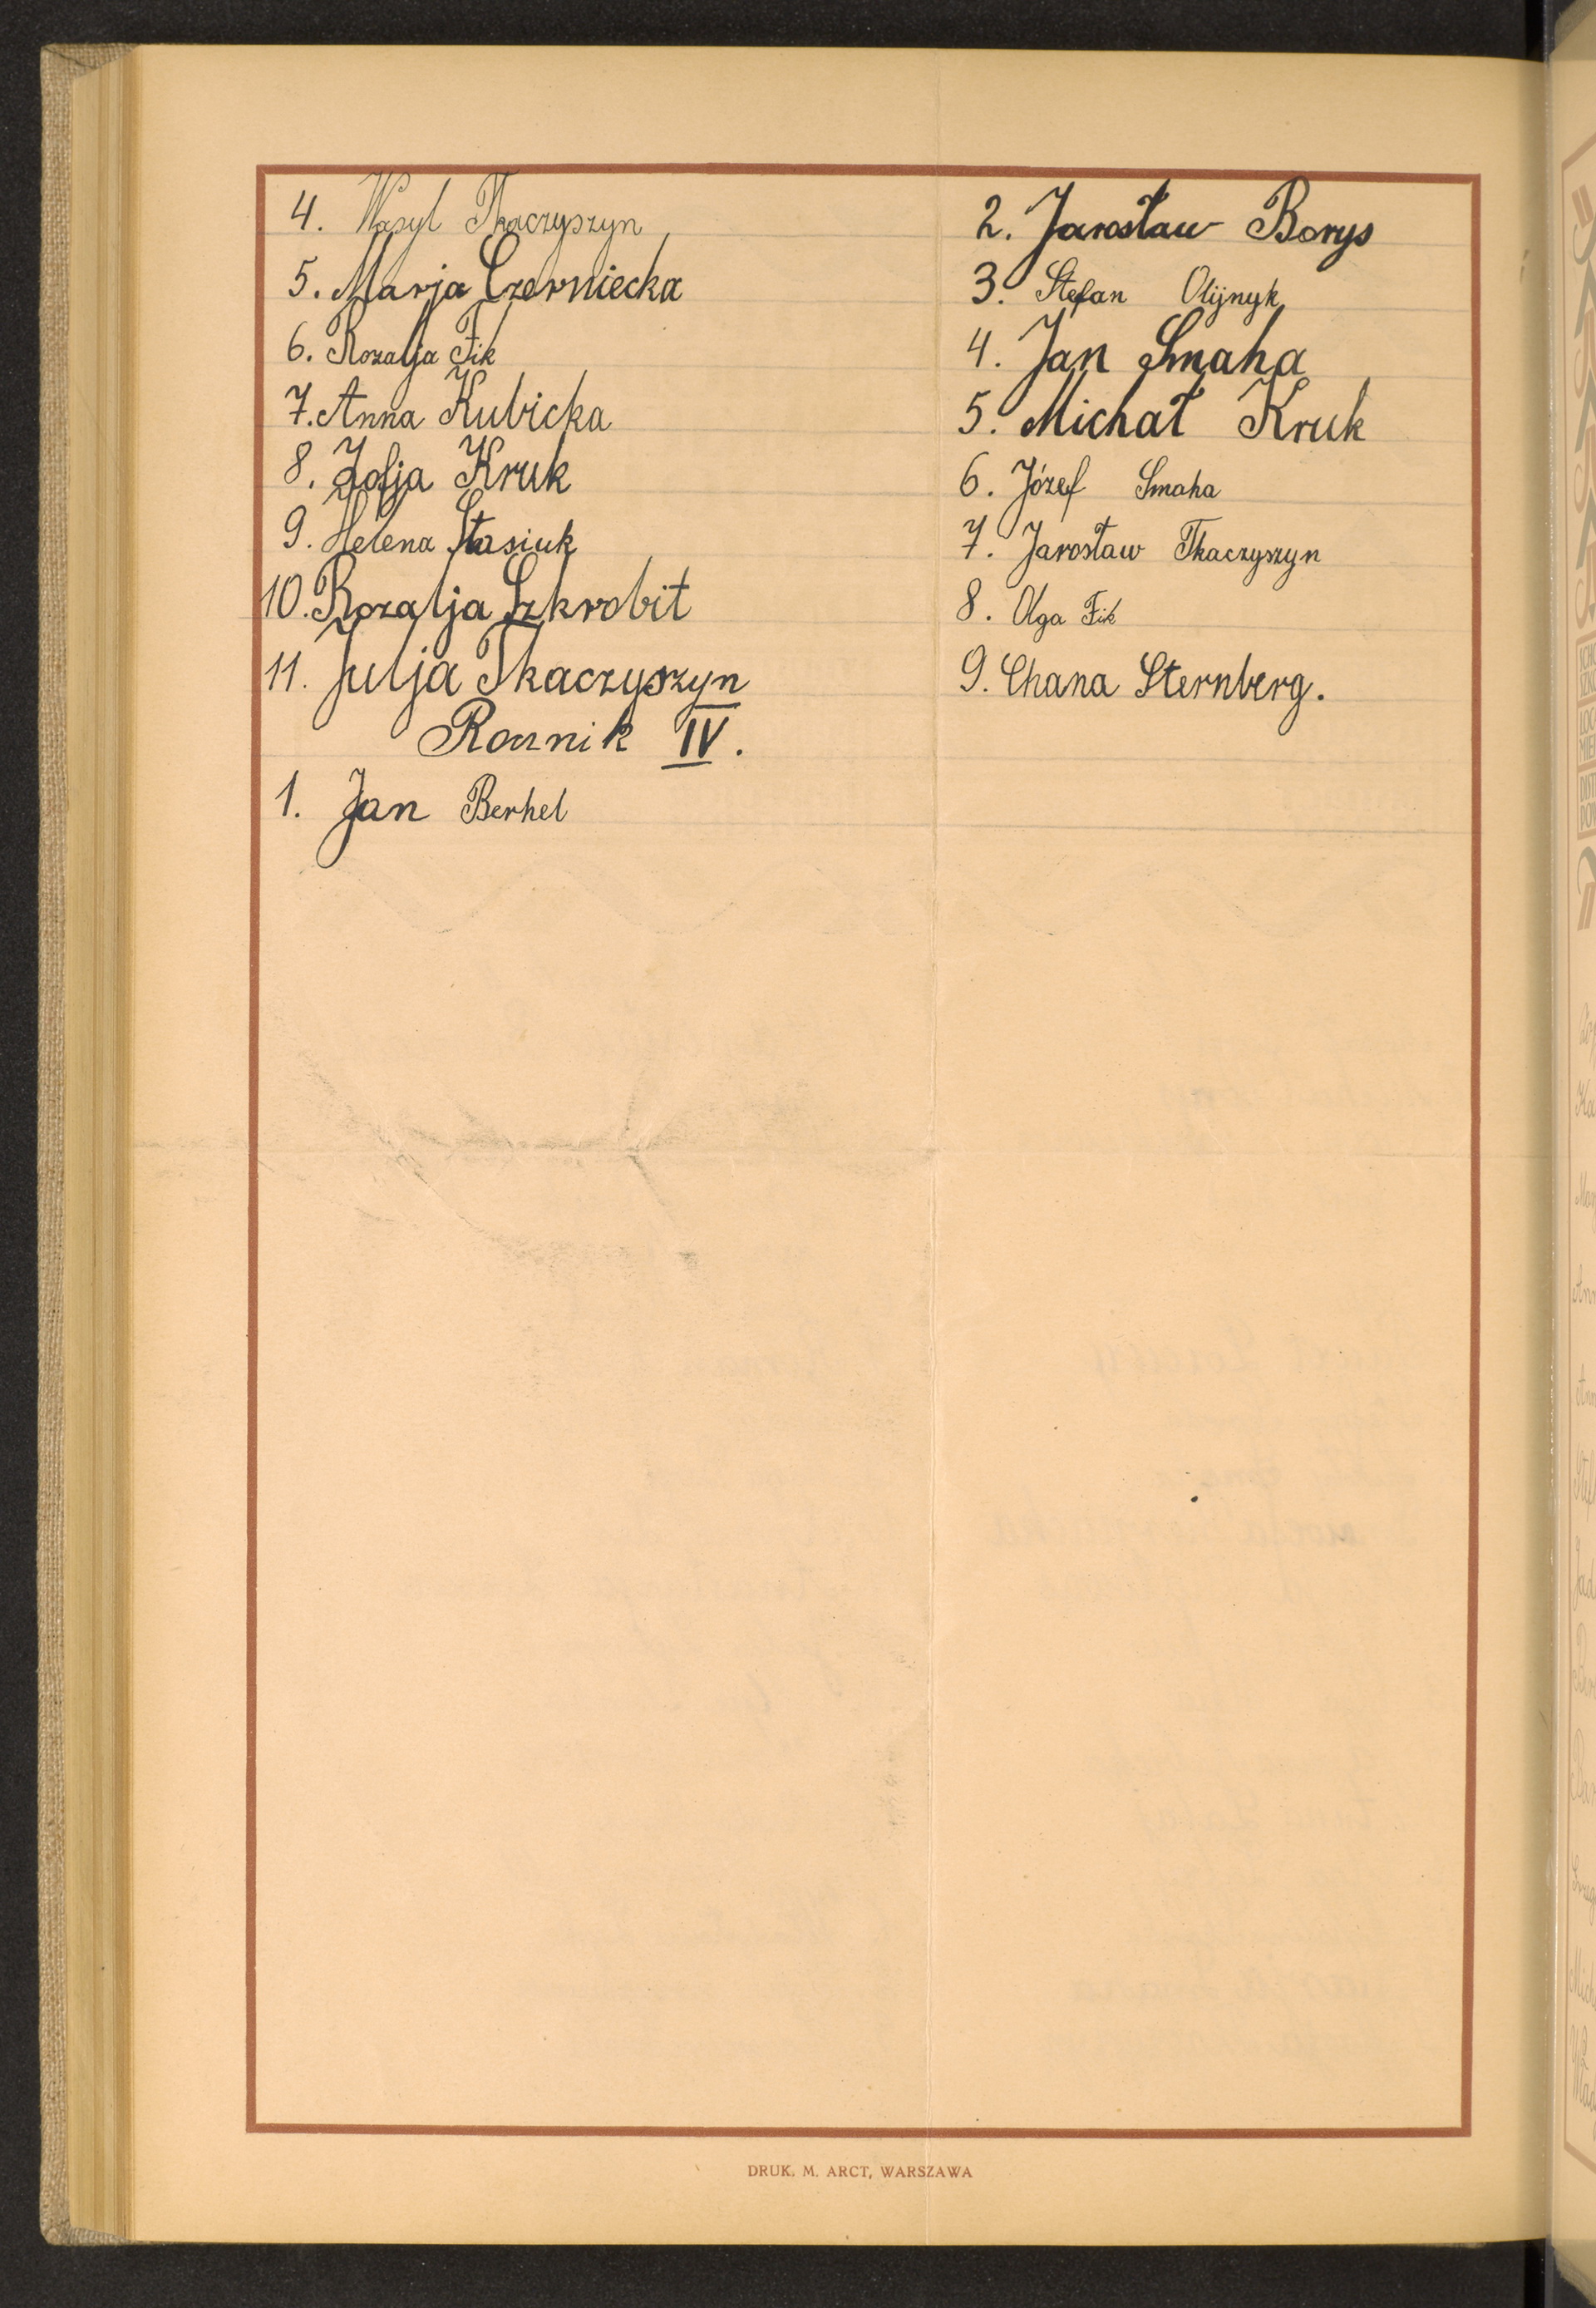 4. Wasyl Tkaczyszyn
5. Marja Czerniecka
6. Rozalja Fik
7. Anna Kubicka
8. Zofja Kruk
9. Helena Stasiuk
10. Rozalja Szkrobit
11. Julja Tkaczyszyn
Rocznik IV.
1. Jan Berhel
2. Jarosław Borys
3. Stefan Olijnyk
4. Jan Smaha
5. Michał Kruk
6. Józef Smaha
7. Jarosław Tkaczyszyn
8. Olga Fik
9. Chana Sternberg.
DRUK. M. ARCT, WARSZAWA